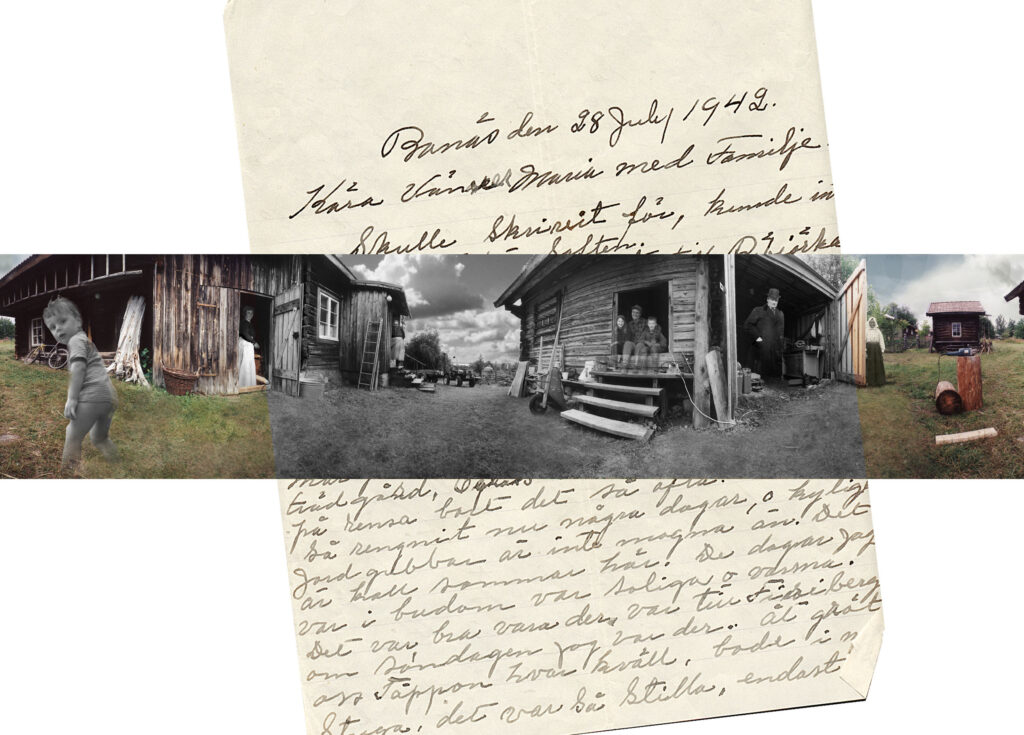 Banäs den 28 July 1942.
Kära Vän Maria med Familje.
Skulle Skrivit för, kunde in
Soften. till Björka
trädgård,
på rensa bort det så ofta.
Så rengnit nu några dagar, o kylig
Jordgubbar är inte mogna än. Det
är kall sommar här. De dagar jag
var i budom var soliga o varma.
Det var bra vara der, var till
om söndagen jog var der. åt gröt
oss Täppon hvar kväll, bode i
Stuga, det var så Stilla, endast